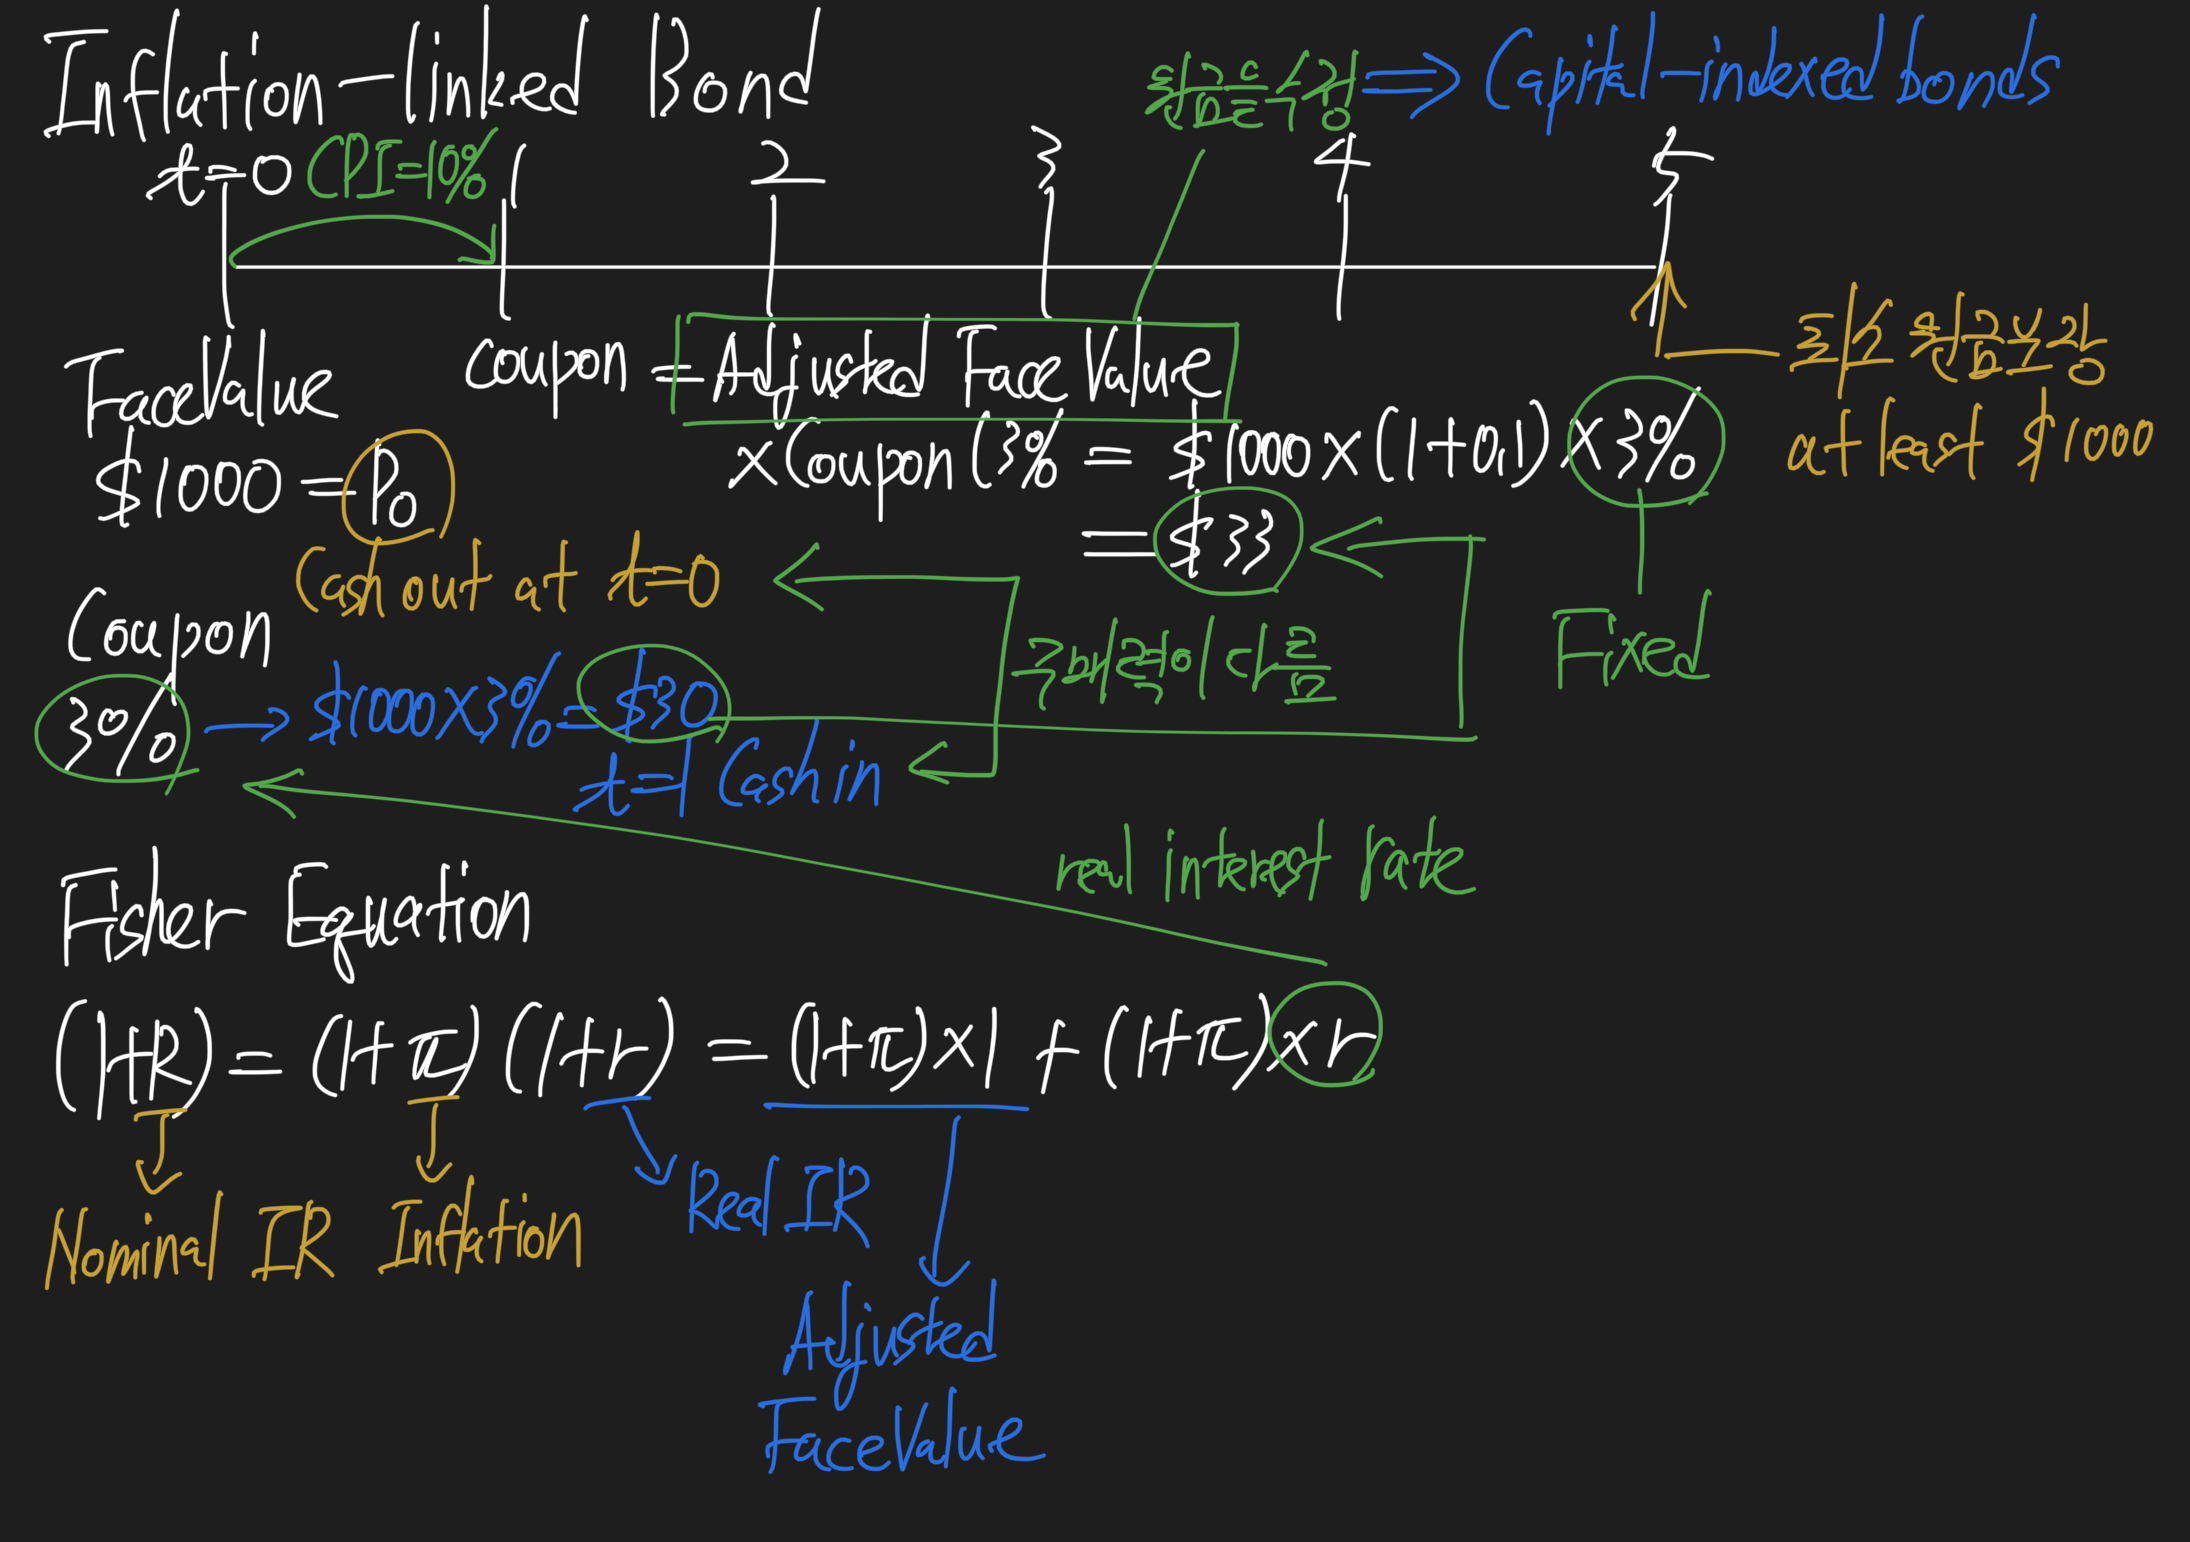 Inflation-linked Bond
원금은 상승 ⇒ Capital-indexed bonds
t=0 CPI=10% 1 2 3 4 5
Face Value
$1000 = P₀
Coupon = Adjusted Face Value
x Coupon (3% = $1000 x (1+0.1) x 3%
= $33
최소 원금보장
at least $1000
Cash out at t=0
Fixed
Coupon
3% → $1000 x 3% = $30
t=1 Cash in
시차로 인해
real interest rate
Fisher Equation
(1+R) = (1+π)(1+r) = (1+π)x1 + (1+π)xr
Nominal IR Inflation
Real IR
Adjusted
Face Value